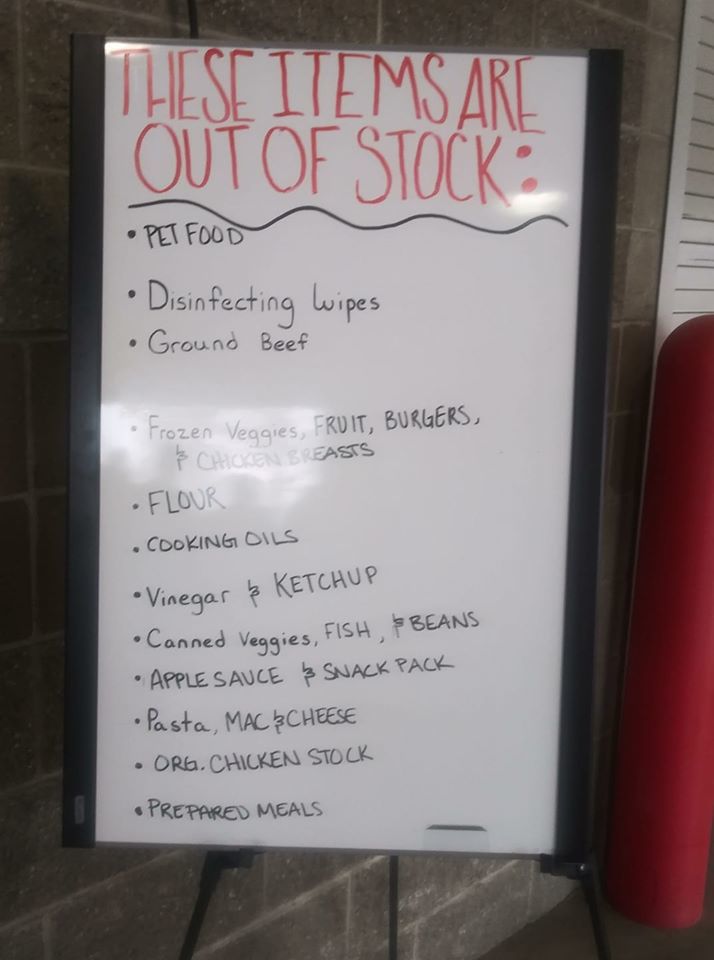 THESE ITEMS ARE
OUT OF STOCK:
• PET FOOD
• Disinfecting Wipes
• Ground Beef
• Frozen Veggies, FRUIT, BURGERS,
& CHICKEN BREASTS
• FLOUR
• COOKING OILS
• Vinegar & KETCHUP
• Canned Veggies, FISH, & BEANS
• APPLE SAUCE & SNACK PACK
• Pasta, MAC & CHEESE
• ORG. CHICKEN STOCK
• PREPARED MEALS